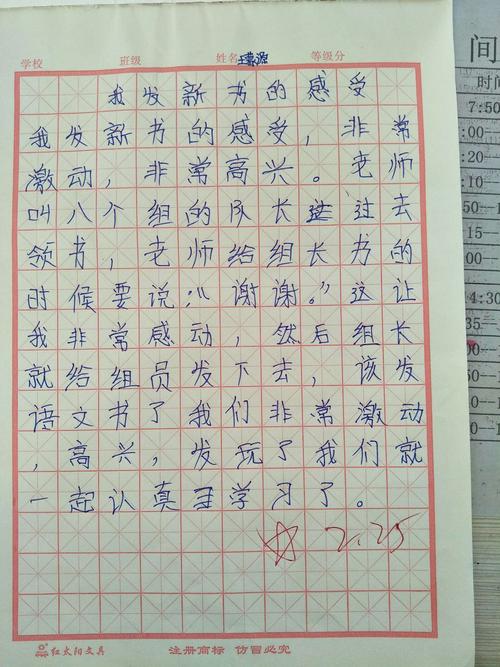 学校 班级 姓名 等级分
我发新书的感受
我发新书的感受，非常
激动，非常高兴。老师
叫八个组的队长过去
领书，老师给组长书的
时候要说：“谢谢。”这让
我非常感动，然后组长
就给组员发下去，该发
语文书了我们非常激动
，高兴，发玩了我们就
一起认真学习了。
☆ 2.25
红太阳文具 注册商标 仿冒必究
间
时间
7:50
:00
:20
:10
50—1
15
:00—
4:30
35
:00—
0—1